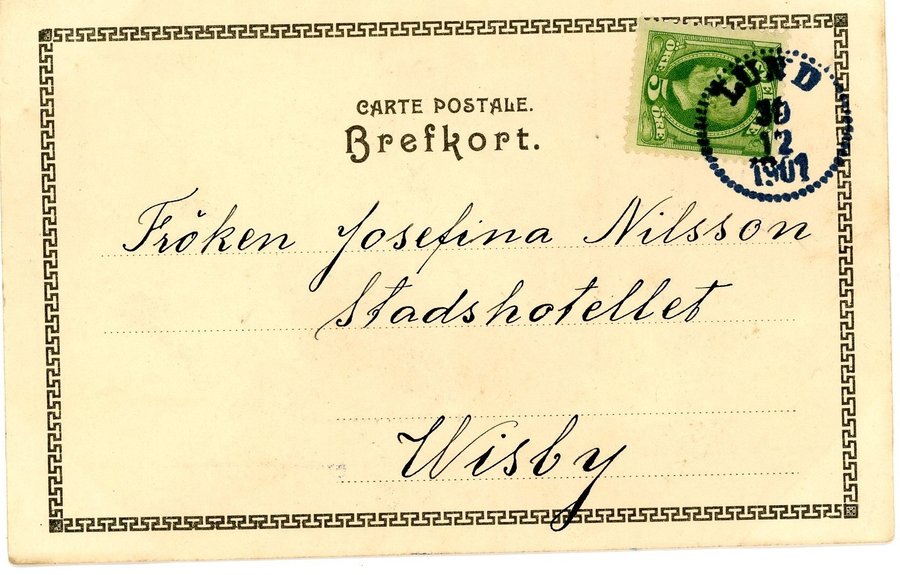 CARTE POSTALE.
Brefkort.
5 ÖRE
LUND
30
12
1901
Fröken Josefina Nilsson
Stadshotellet
Wisby